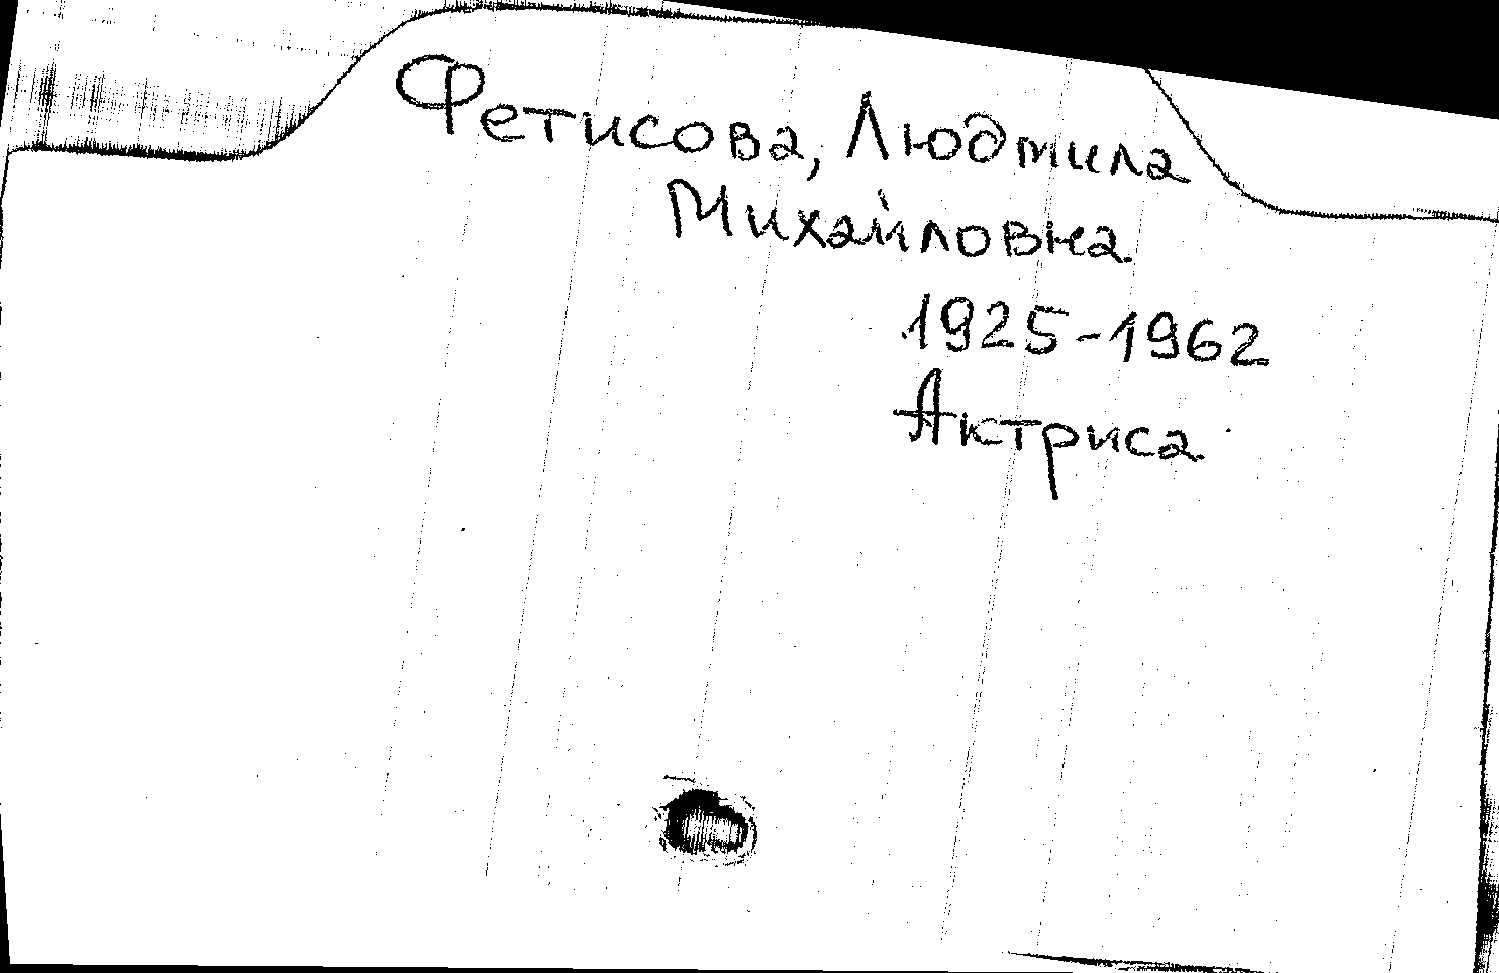 Фетисова, Людмила
Михайловна
1925-1962
Актриса